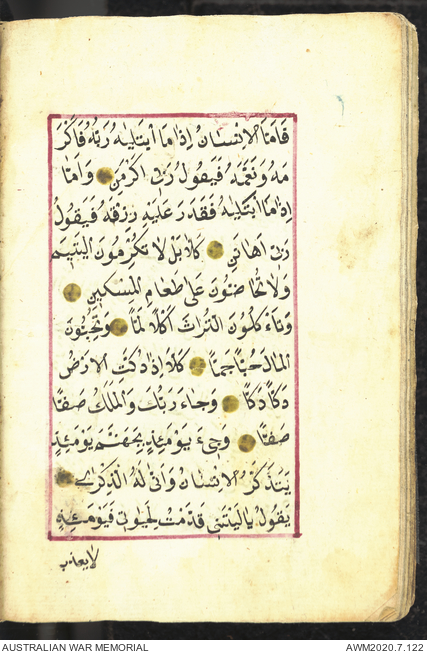 فَاَمَّا الْاِنْسَانُ اِذَا مَا ابْتَلٰيهُ رَبُّهُ فَاَكْرَ
مَهُ وَنَعَّمَهُ فَيَقُولُ رَبّٖى اَكْرَمَنِ وَاَمَّا
اِذَا مَا ابْتَلٰيهُ فَقَدَرَ عَلَيْهِ رِزْقَهُ فَيَقُولُ
رَبّٖى اَهَانَنِ كَلَّا بَلْ لَا تُكْرِمُونَ الْيَتٖيمَ
وَلَا تَحَاضُّونَ عَلٰى طَعَامِ الْمِسْكٖينِ
وَتَاءْكُلُونَ التُّرَاثَ اَكْلًا لَمًّا وَتُحِبُّونَ
الْمَالَ حُبًّا جَمًّا كَلَّا اِذَا دُكَّتِ الْاَرْضُ
دَكًّا دَكًّا وَجَاءَ رَبُّكَ وَالْمَلَكُ صَفًّا
صَفًّا وَجٖىءَ يَوْمَئِذٍ بِجَهَنَّمَ يَوْمَئِذٍ
يَتَذَكَّرُ الْاِنْسَانُ وَاَنّٰى لَهُ الذِّكْرٰى
يَقُولُ يَا لَيْتَنٖى قَدَّمْتُ لِحَيَاتٖى فَيَوْمَئِذٍ
لا يعذب
AUSTRALIAN WAR MEMORIAL AWM2020.7.122